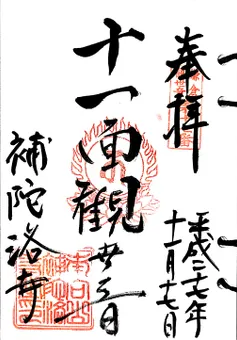 奉拝
平成二七年
十一月十七日
十一面觀世音
補陀洛寺